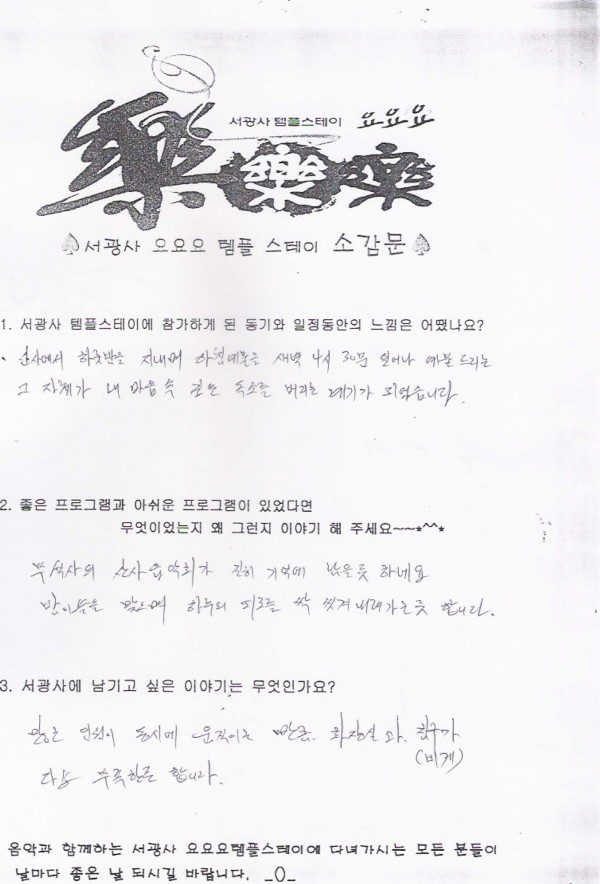 서광사 템플스테이 요요요
樂 樂 樂
서광사 요요요 템플 스테이 소감문
1. 서광사 템플스테이에 참가하게 된 동기와 일정동안의 느낌은 어땠나요?
산사에서 하룻밤을 지내며 아침예불을 새벽 4시 30분 일어나 예불 드리는
그 자체가 내 마음속 깊은 독소를 버리는 계기가 되었습니다.
2. 좋은 프로그램과 아쉬운 프로그램이 있었다면
무엇이었는지 왜 그런지 이야기 해 주세요~~*^^*
부석사의 산사음악회가 긴히 기억에 남을듯 하네요
맞으며 하루의 피로를 싹 씻겨 내려가는듯 합니다.
3. 서광사에 남기고 싶은 이야기는 무엇인가요?
많은 인원이 동시에 움직이는 만큼. 화장실과. 침구가
(비게)
다소 부족한듯 합니다.
음악과 함께하는 서광사 요요요템플스테이에 다녀가시는 모든 분들이
날마다 좋은 날 되시길 바랍니다. _()_